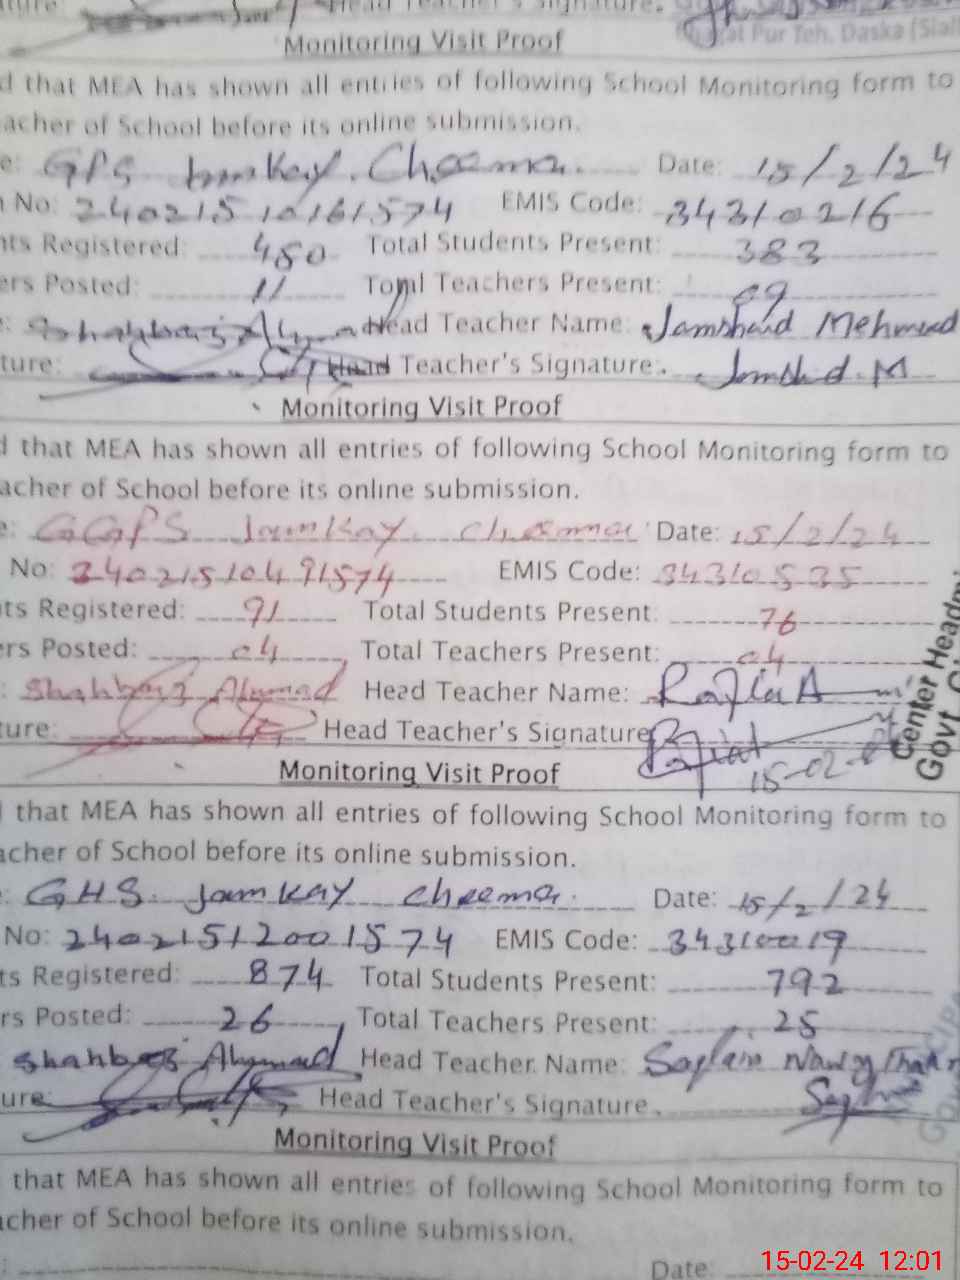 Head Teacher's Signature.
Monitoring Visit Proof
Pur Teh. Daska (Sial
d that MEA has shown all entries of following School Monitoring form to
acher of School before its online submission.
e: GPS Jamkay Cheema. Date: 15/2/24
No: 24021510161574 EMIS Code: 34310216
nts Registered: 450 Total Students Present: 383
ers Posted: 11 Total Teachers Present: 09
: Shahbaz Ahmad Head Teacher Name: Jamshaid Mehmud
ture: Head Teacher's Signature. Jamshd. M
Monitoring Visit Proof
d that MEA has shown all entries of following School Monitoring form to
acher of School before its online submission.
e: GGPS Jamkay Cheema Date: 15/2/24
No: 24021510491574 EMIS Code: 34310535
nts Registered: 91 Total Students Present: 76
ers Posted: 04 Total Teachers Present: 04
: Shahbaz Ahmad Head Teacher Name:
ture: Head Teacher's Signature
15-02-
Center Headmi
Govt. Gi
Monitoring Visit Proof
that MEA has shown all entries of following School Monitoring form to
acher of School before its online submission.
: GHS Jamkay Cheema. Date: 15/2/24
No: 24021512001574 EMIS Code: 34310019
ts Registered: 874 Total Students Present: 792
rs Posted: 26 Total Teachers Present: 25
Shahbaz Ahmad Head Teacher Name:
ure: Head Teacher's Signature.
Monitoring Visit Proof
that MEA has shown all entries of following School Monitoring form to
acher of School before its online submission.
: Date:
15-02-24 12:01